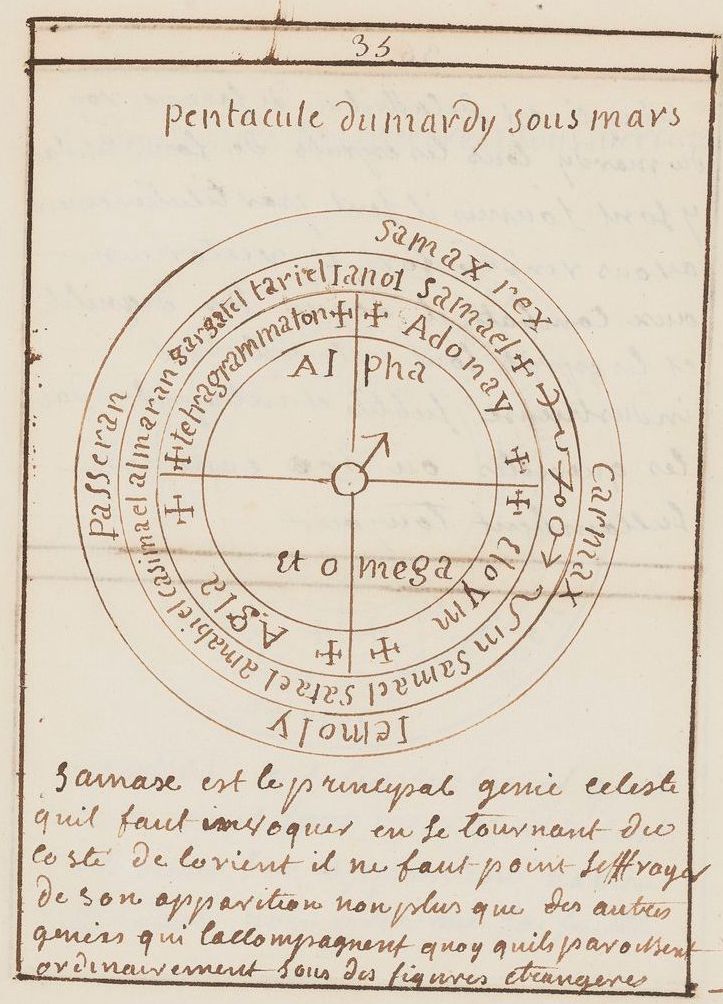 35
pentacule du mardy sous mars
samax rex
carmax
Iemoly
passeran
Ianol samael
in samael satael amabiel casimael almaran gargatel tariel
Adonay
Eloym
Agla
tetragrammaton
Al pha
Et o mega
samaxe est le principal genie celeste
quil faut invoquer en se tournant du
costé de lorient il ne faut point seffrayer
de son apparition non plus que des autres
genies qui laccompagnent quoy quils paroissent
ordinairement sous des figures etrangeres